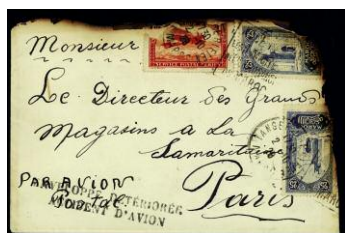 Monsieur
Le Directeur des Grands
Magasins a La
Samaritaine
PAR AVION
ENVELOPPE DÉTÉRIORÉE
ACCIDENT D'AVION
Paris